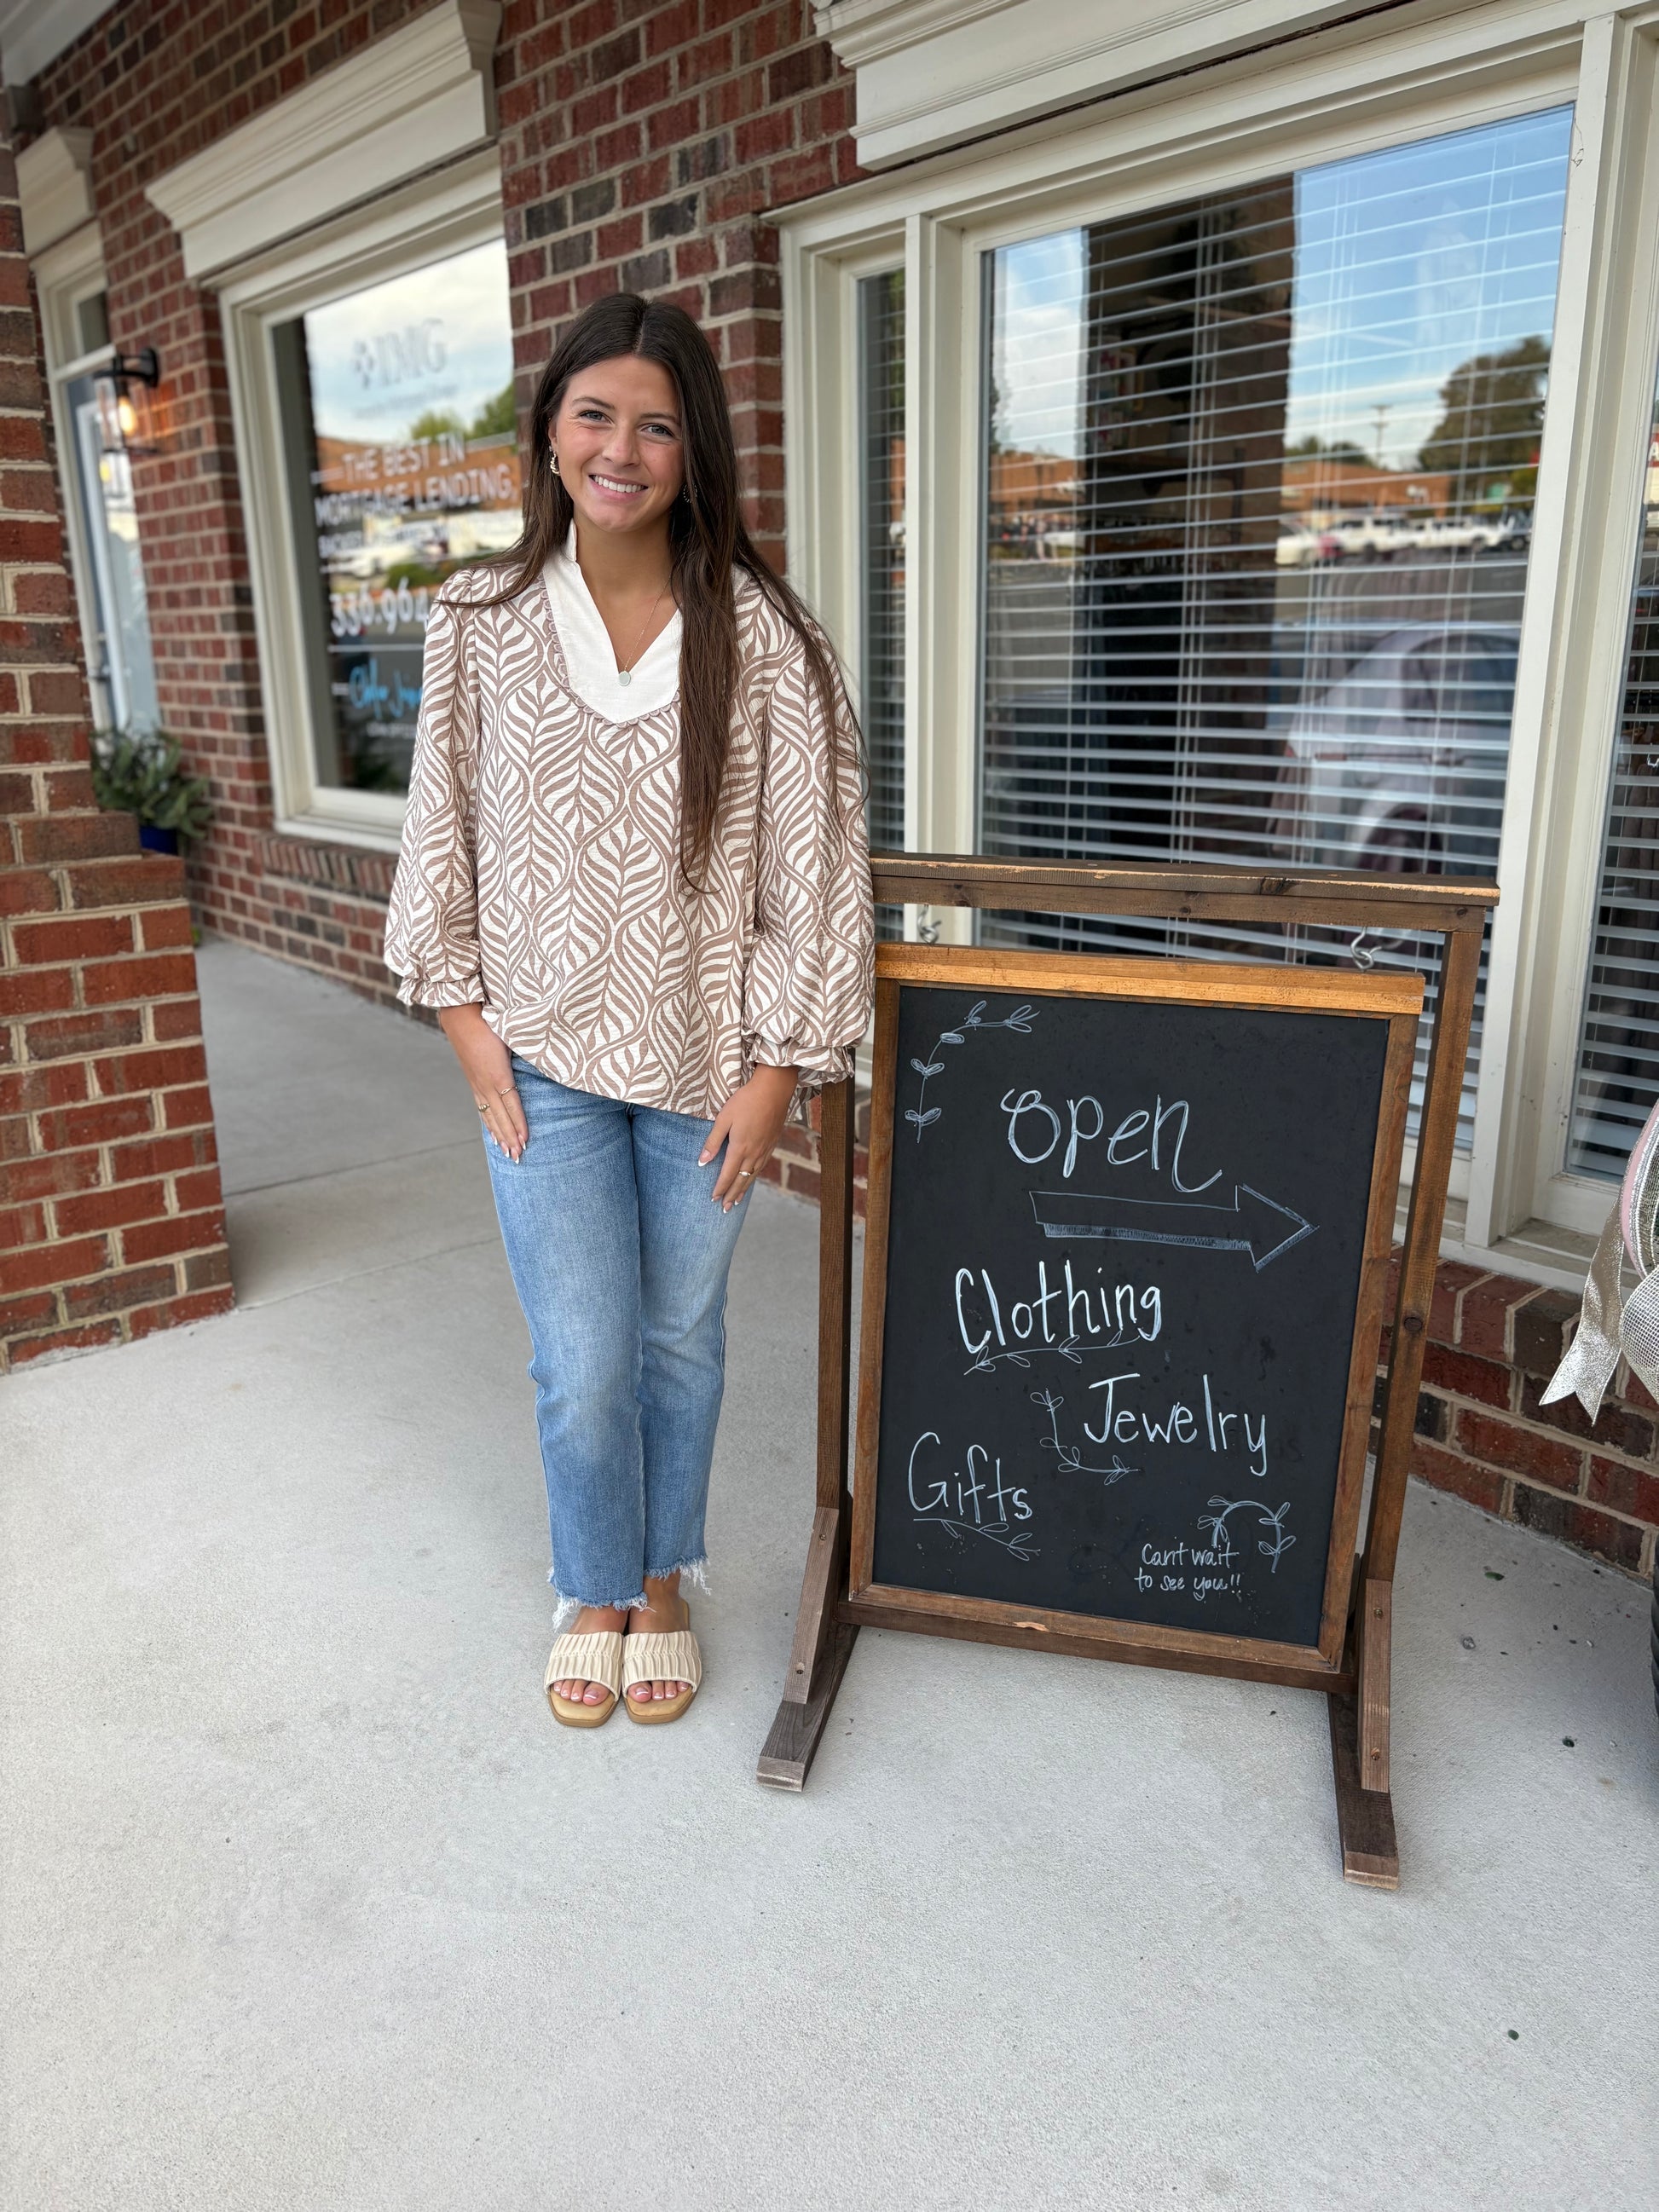 IMG
THE BEST IN
MORTGAGE LENDING,
336.904
open
Clothing
Jewelry
Gifts
Can't wait
to see you!!